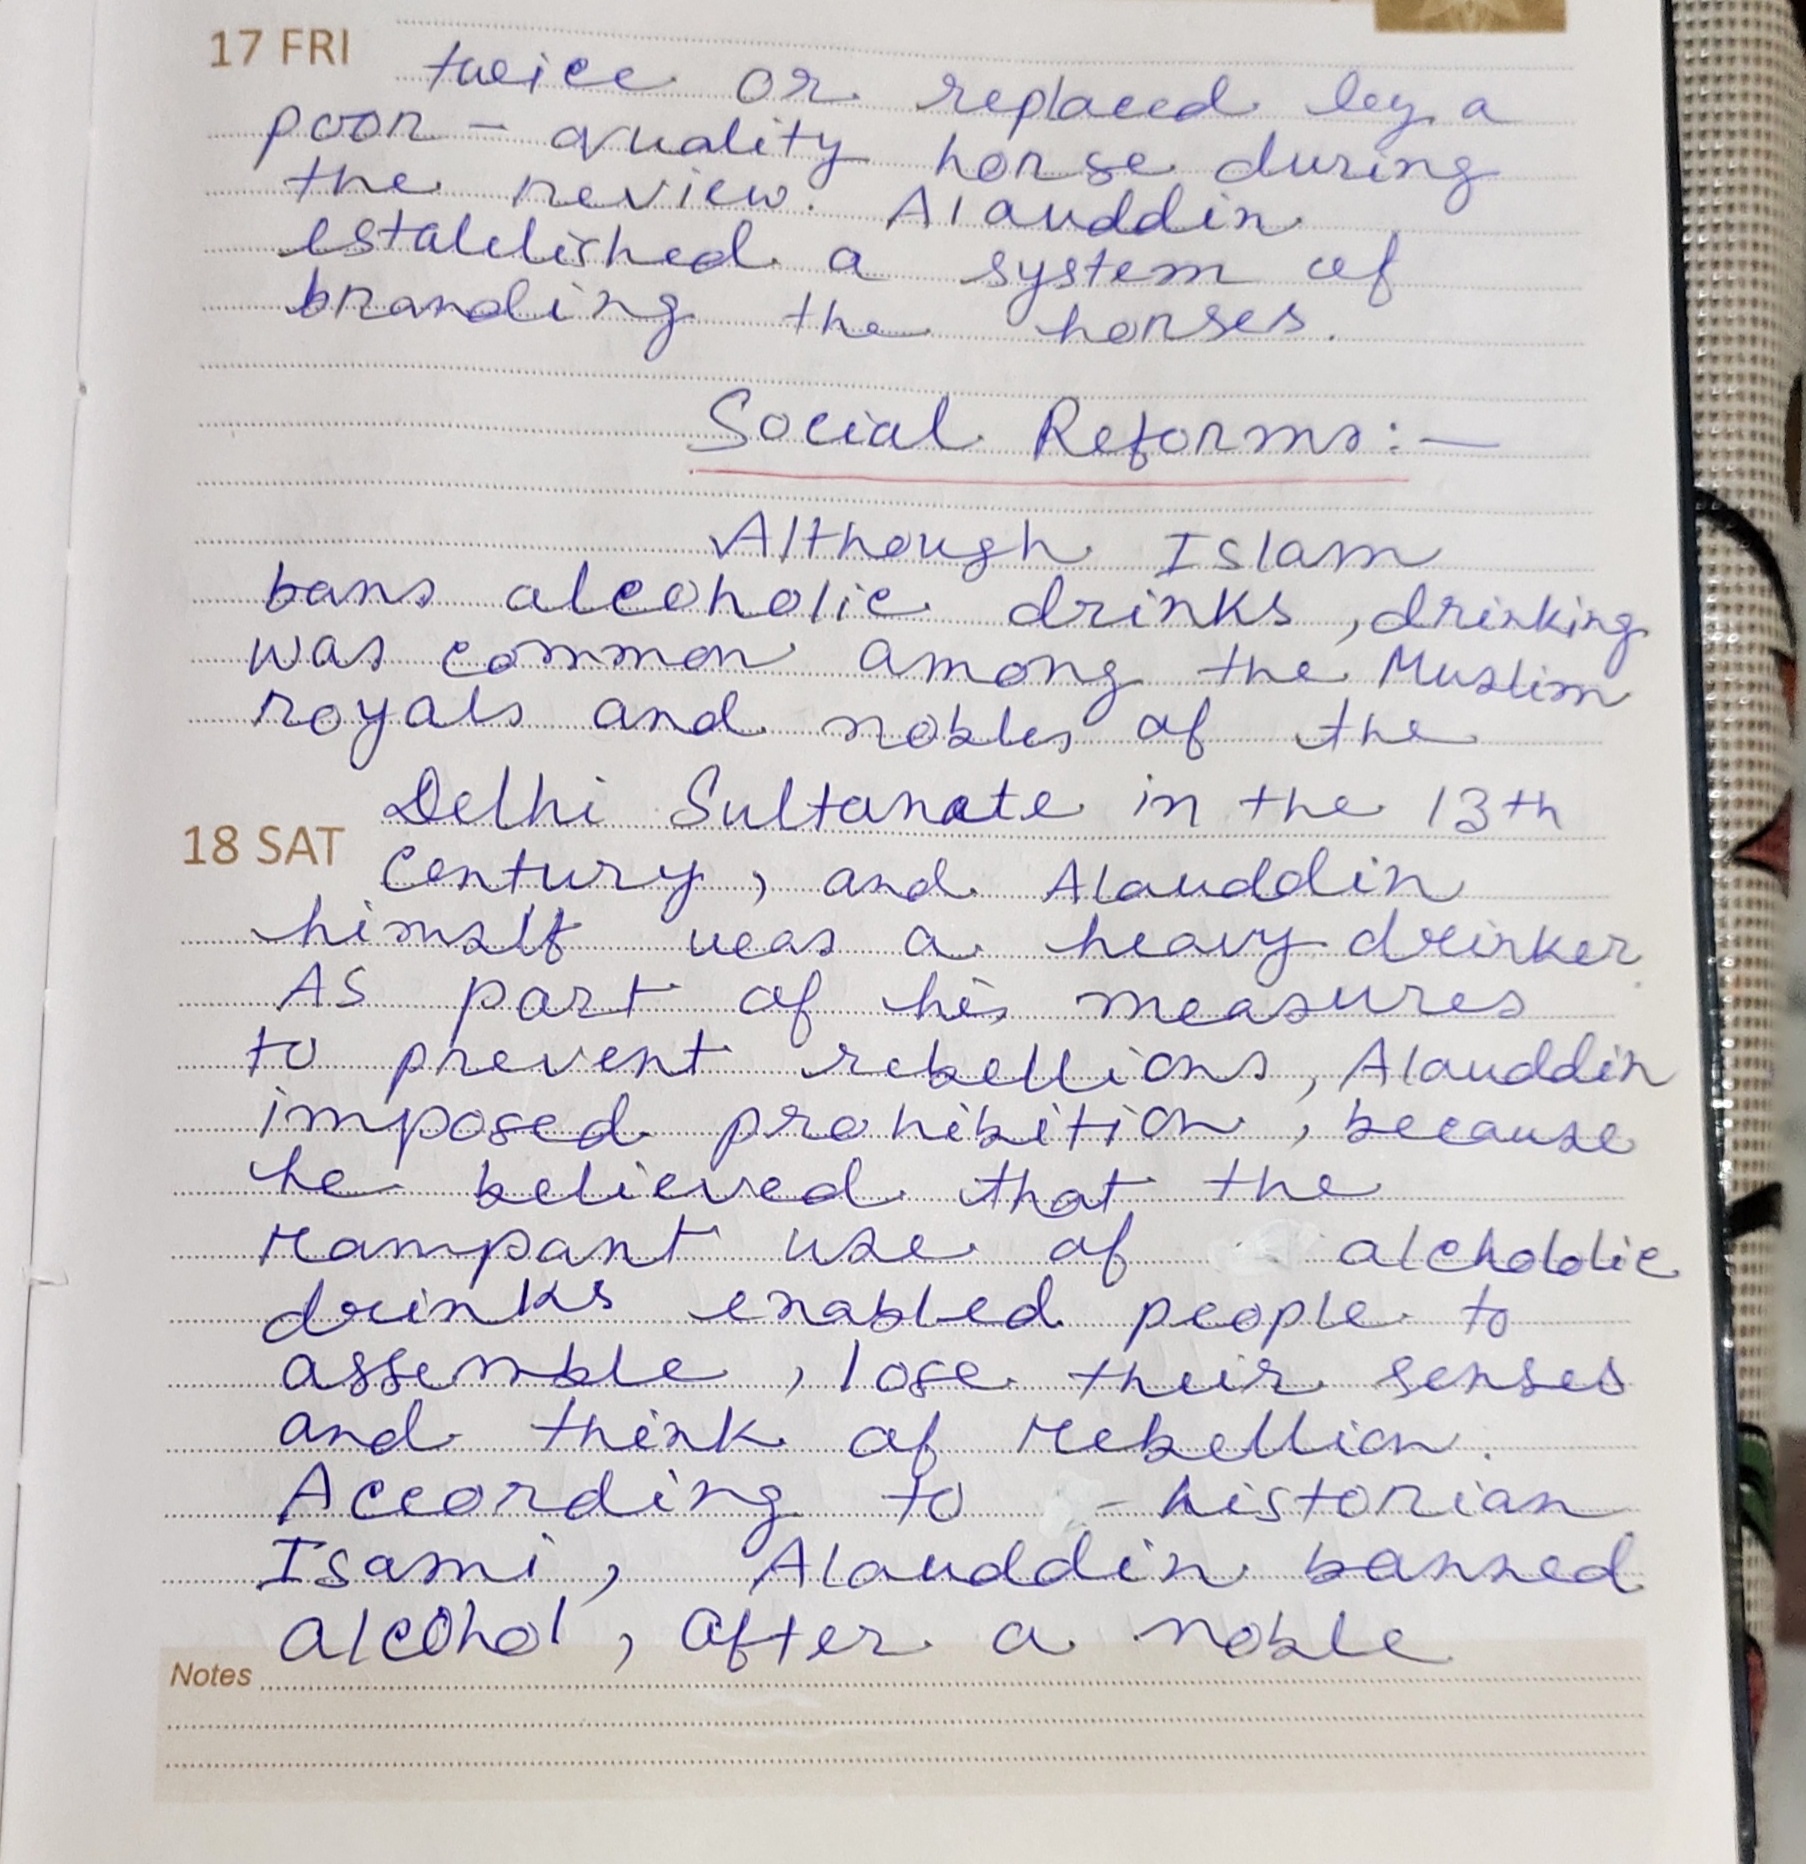 17 FRI
twice or replaced by a
poor - quality horse during
the review. Alauddin
established a system of
branding the horses.
Social Reforms:-
Although Islam
bans alcoholic drinks, drinking
was common among the Muslim
royals and nobles of the
Delhi Sultanate in the 13th
18 SAT
Century, and Alauddin
himself was a heavy drinker.
As part of his measures
to prevent rebellions, Alauddin
imposed prohibition, because
he believed that the
rampant use of alchololic
drinks enabled people to
assemble, lose their senses
and think of rebellion.
According to - historian
Isami, Alauddin banned
alcohol, after a noble
Notes